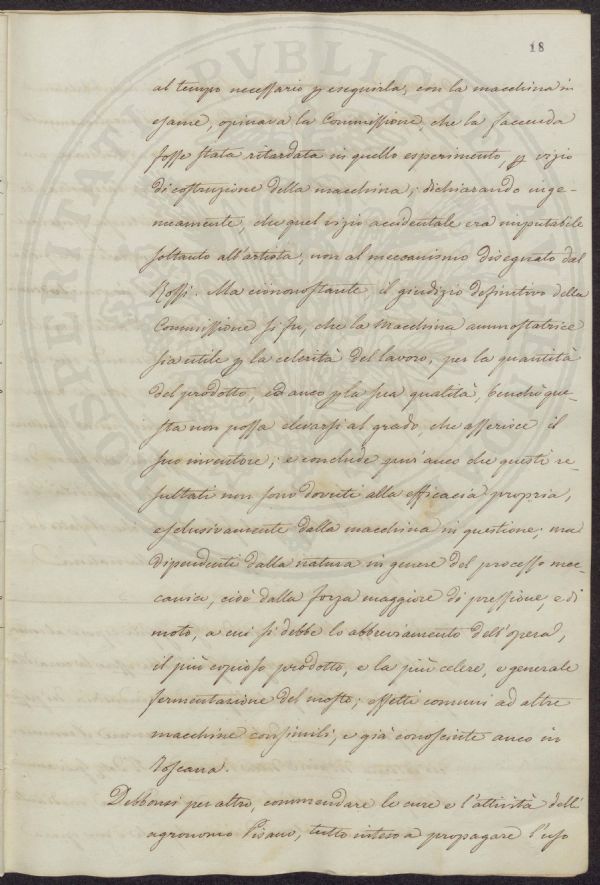 18
al tempo necessario p eseguirla, con la macchina in
esame, opinava la Commissione, che la faccenda
fosse stata ritardata in quello esperimento, p vizio
di costruzione della macchina; dichiarando inge-
nuamente, che quel vizio accidentale era imputabile
soltanto all'artista, non al meccanismo disegnato dal
Rossi. Ma ciononostante il giudizio definitivo della
Commissione si fu, che la Macchina ammostatrice
sia utile p la celerità del lavoro, per la quantità
del prodotto, ed anco p la sua qualità, benchè que-
sta non possa elevarsi al grado, che asserisce il
suo inventore; e conclude pur'anco che questi re-
sultati non sono dovuti alla efficacia propria,
esclusivamente dalla macchina in questione; ma
dipendenti dalla natura in genere del processo mec-
canico, cioè dalla forza maggiore di pressione, e di
moto, a cui si debbe lo abbreviamento dell'opera,
il più copioso prodotto, e la più celere, e generale
fermentazione del mosto; effetti comuni ad altre
macchine consimili, e già conosciute anco in
Toscana.
Debbonsi per altro, commendare le cure e l'attività dell'
agronomo Pisano, tutto inteso a propagare l'uso
PROSPERITATI PVBLICAE